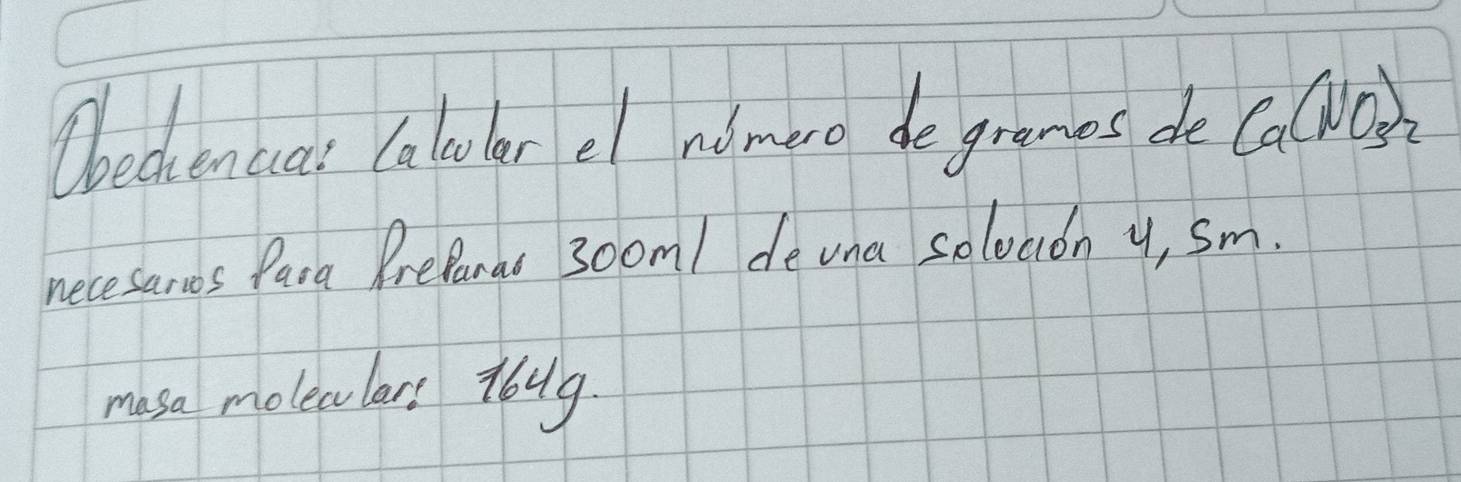 Obediencia: Calcular el número de gramos de Ca(NO3)2
necesarios Para Preparar 300ml de una solución 4,5m.
masa molecular: 164g.